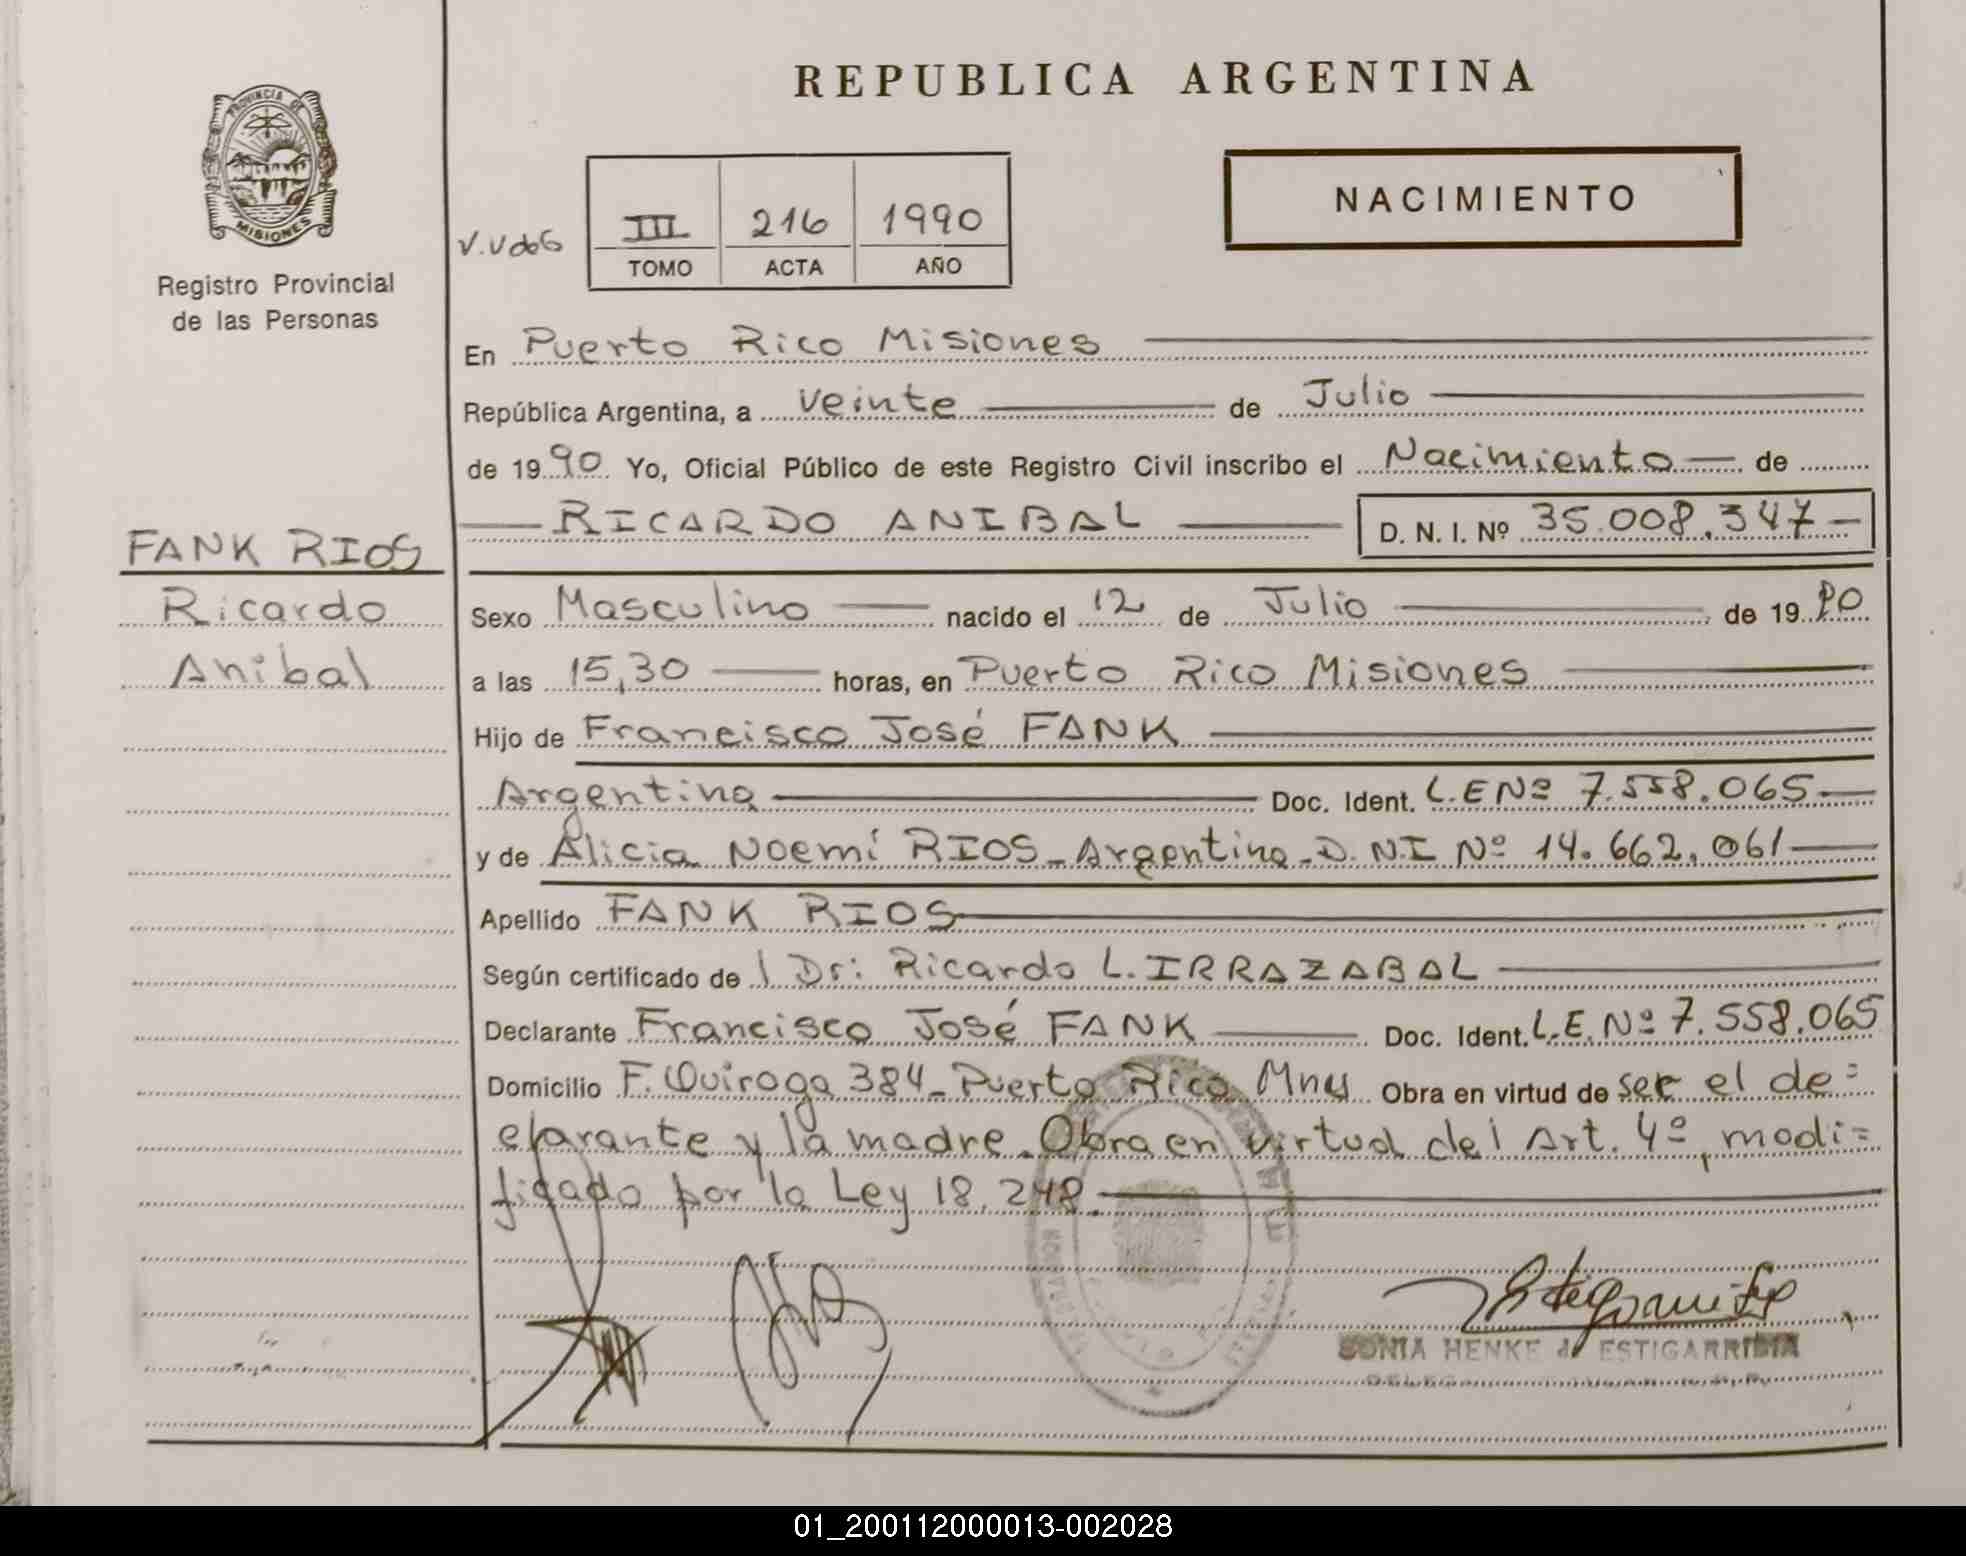 REPUBLICA ARGENTINA
PROVINCIA DE
MISIONES
Registro Provincial
de las Personas
NACIMIENTO
III 216 1990
TOMO ACTA AÑO
En Puerto Rico Misiones
República Argentina, a veinte de Julio
de 1990 Yo, Oficial Público de este Registro Civil inscribo el Nacimiento de
RICARDO ANIBAL D. N. I. Nº 35.008.347
FANK RIOS
Ricardo
Anibal
Sexo Masculino nacido el 12 de Julio de 1990
a las 15,30 horas, en Puerto Rico Misiones
Hijo de Francisco José FANK
Argentina Doc. Ident. L.E Nº 7.558.065
y de Alicia Noemí RIOS - Argentina - D.N.I Nº 14.662.061
Apellido FANK RIOS
Según certificado de l Dr: Ricardo L. IRRAZABAL
Declarante Francisco José FANK Doc. Ident. L.E. Nº 7.558.065
Domicilio F. Quiroga 384 - Puerto Rico Mnes Obra en virtud de ser el de=
clarante y la madre. Obra en virtud del Art. 4º, modi=
ficado por la Ley 18.248.
SONIA HENKE de ESTIGARRIBIA
01_200112000013-002028